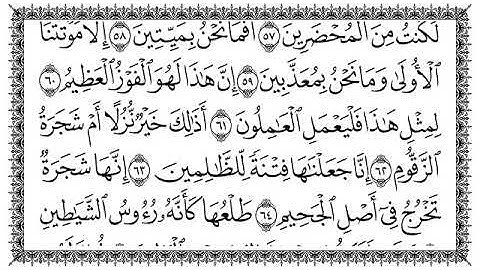 لَكُنتُ مِنَ ٱلْمُحْضَرِينَ ٥٧ أَفَمَا نَحْنُ بِمَيِّتِينَ ٥٨ إِلَّا مَوْتَتَنَا
ٱلْأُولَىٰ وَمَا نَحْنُ بِمُعَذَّبِينَ ٥٩ إِنَّ هَٰذَا لَهُوَ ٱلْفَوْزُ ٱلْعَظِيمُ ٦٠
لِمِثْلِ هَٰذَا فَلْيَعْمَلِ ٱلْعَٰمِلُونَ ٦١ أَذَٰلِكَ خَيْرٌ نُّزُلًا أَمْ شَجَرَةُ
ٱلزَّقُّومِ ٦٢ إِنَّا جَعَلْنَٰهَا فِتْنَةً لِّلظَّٰلِمِينَ ٦٣ إِنَّهَا شَجَرَةٌ
تَخْرُجُ فِىٓ أَصْلِ ٱلْجَحِيمِ ٦٤ طَلْعُهَا كَأَنَّهُۥ رُءُوسُ ٱلشَّيَٰطِينِ